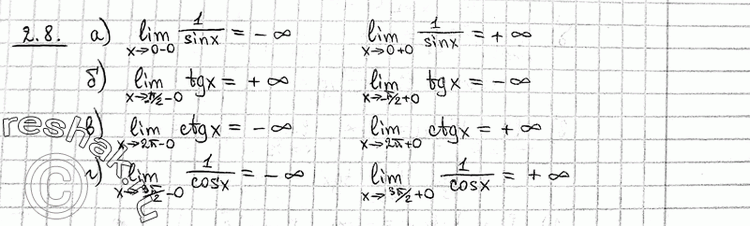 2.8. а) lim x→0-0 1/sinx = -∞ lim x→0+0 1/sinx = +∞
б) lim x→π/2-0 tgx = +∞ lim x→π/2+0 tgx = -∞
в) lim x→2π-0 ctgx = -∞ lim x→2π+0 ctgx = +∞
г) lim x→3π/2-0 1/cosx = -∞ lim x→3π/2+0 1/cosx = +∞
reshak.
©